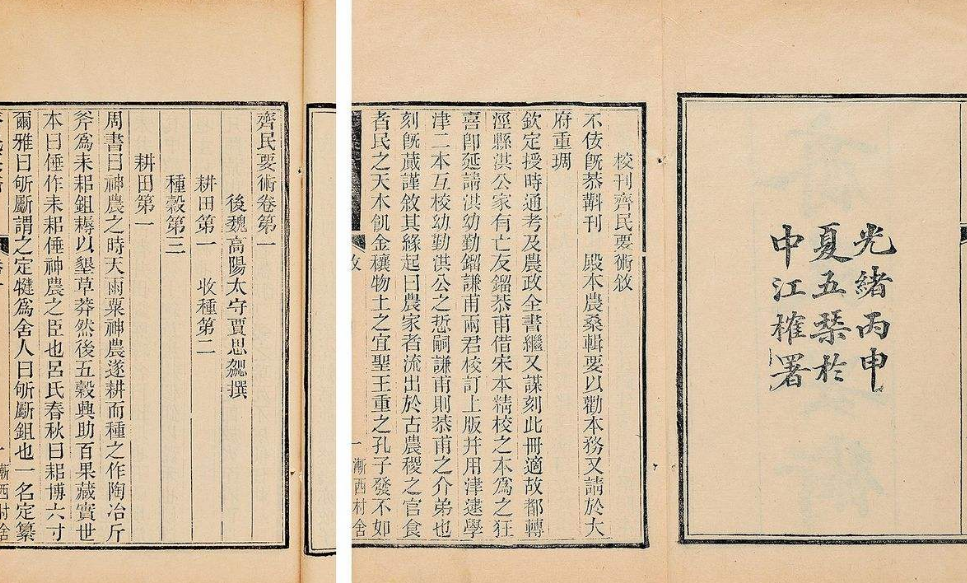 光緒丙申
夏五栞於
中江榷署
校刊齊民要術敘
不佞旣恭斠刊 殿本農桑輯要以勸本務又請於大
府重琱
欽定授時通考及農政全書繼又謀刻此冊適故都轉
涇縣洪公家有亡友鎦恭甫借宋本精校之本爲之狂
喜卽延請洪幼勤鎦謙甫兩君校訂上版幷用津逮學
津二本互校幼勤洪公之悊嗣謙甫則恭甫之介弟也
刻旣蕆謹敘其緣起曰農家者流出於古農稷之官食
者民之天木饑金穰物土之宜聖王重之孔子發不如
一 漸西村舍
齊民要術卷第一
後魏高陽太守賈思勰撰
耕田第一 收種第二
種穀第三
耕田第一
周書曰神農之時天雨粟神農遂耕而種之作陶冶斤
斧爲耒耜鉏耨以墾草莽然後五穀興助百果藏實世
本曰倕作耒耜倕神農之臣也呂氏春秋曰耜博六寸
爾雅曰斪斸謂之定犍爲舍人曰斪斸鉏也一名定纂
一 漸西村舍